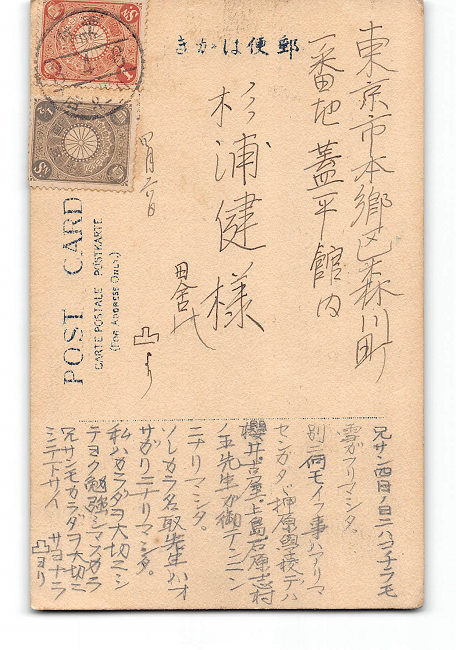 郵便はがき
東京市本郷区森川町
一番地 蓋平館内
杉浦健様
四月六日
田舎
凸より
POST CARD
CARTE POSTALE POSTKARTE
(FOR ADDRESS ONLY.)
兄サン四日ノ日ニハコチラモ
雪ガフリマシタ。
別ニ何モイフ事ハアリマ
センガタヾ柳原學校デハ
櫻井古屋上島石原志村
ノ五先生ガ御テンニン
ニナリマシタ。
ソレカラ名取先生ハオ
サガリニナリマシタ。
私ハカラダヲ大切ニシ
テヨク勉強シマスカラ
兄サンモカラダヲ大切ニ
シテ下サイ サヨナラ
凸ヨリ